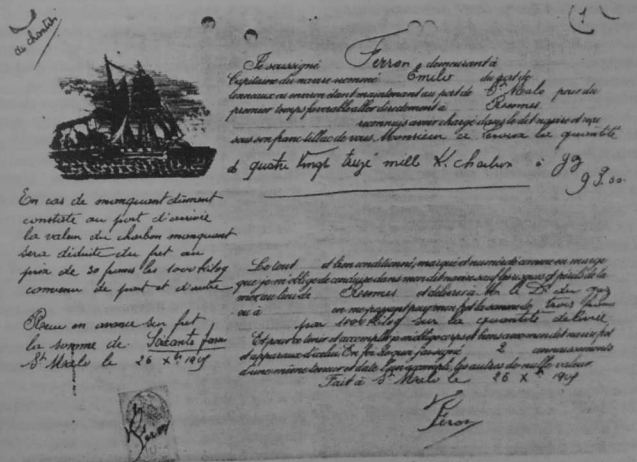 (1
de chantier
Je soussigné Ferron demeurant à
Capitaine du navire nommé Émile du port de
tonneaux ou environ étant maintenant au port de St Malo pour du
premier temps favorable aller directement à Rennes
reconnais avoir chargé dans le dit navire et mis
sous son franc tillac de vous Monsieur la quantité
de quatre vingt treize mille K. charbon à gaz
93.00
En cas de manquant dûment
constaté au port d'arrivée
la valeur du charbon manquant
sera déduite du fret au
prix de 30 francs les 1000 kilog
convenu de part et d'autre
Pour en avance sur fret
la somme de Soixante francs
St Malo le 26 Xbre
Le tout et bien conditionné, marqué et numéroté comme en marge
que je m'oblige de conduire dans mon dit navire sauf les risques et périls de la
mer au lieu de Rennes et délivrer à Mr le Dr du gaz
ou à en me payant pour mon fret la somme de trois francs
par 1000 kilog sur la quantité délivrée
Et pour ce tenir et accomplir je m'oblige corps et biens avec mon dit navire fret
et apparaux d'icelui. En foi de quoi j'ai signé 2 connaissements
d'une même teneur et date l'un accompli, les autres de nulle valeur
Fait à St Malo le 26 Xbre
Féron
Féron